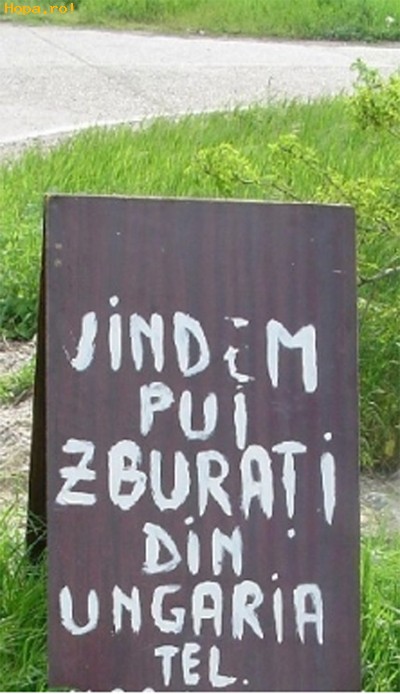 Hopa.ro!
VINDEM
PUI
ZBURAȚI
DIN
UNGARIA
TEL.